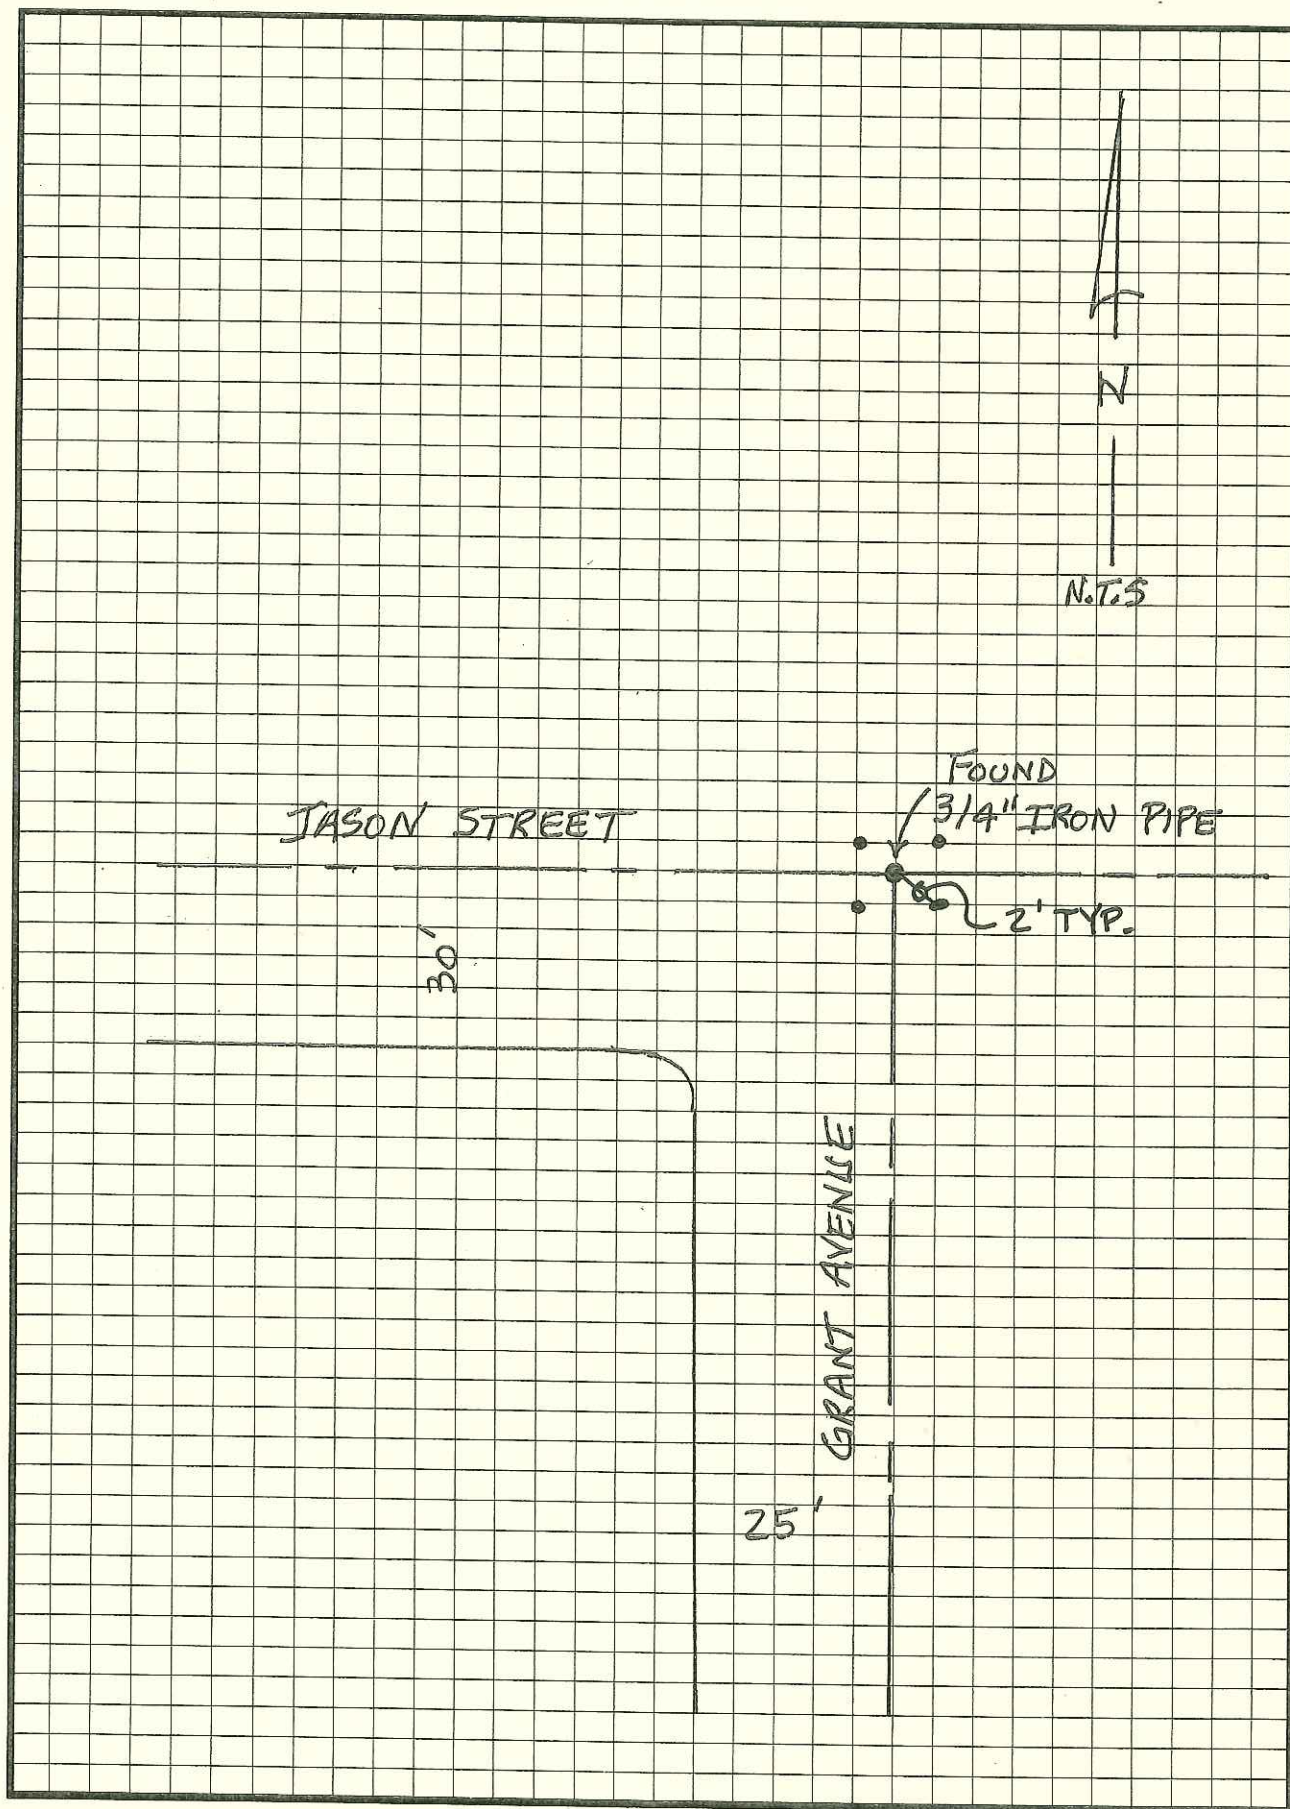 N
N.T.S
FOUND
3/4" IRON PIPE
JASON STREET
2' TYP.
30'
GRANT AVENUE
25'